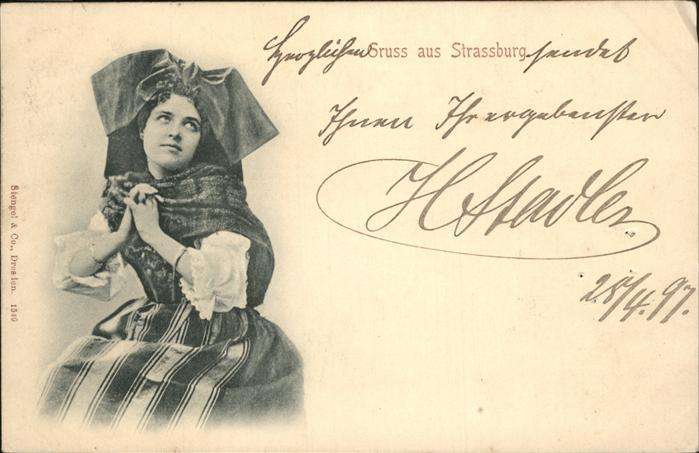 Herzlichen Gruss aus Strassburg sendet
Ihnen Ihr ergebenster
H Stadler
28/4.97.
Stengel & Co., Dresden. 1549